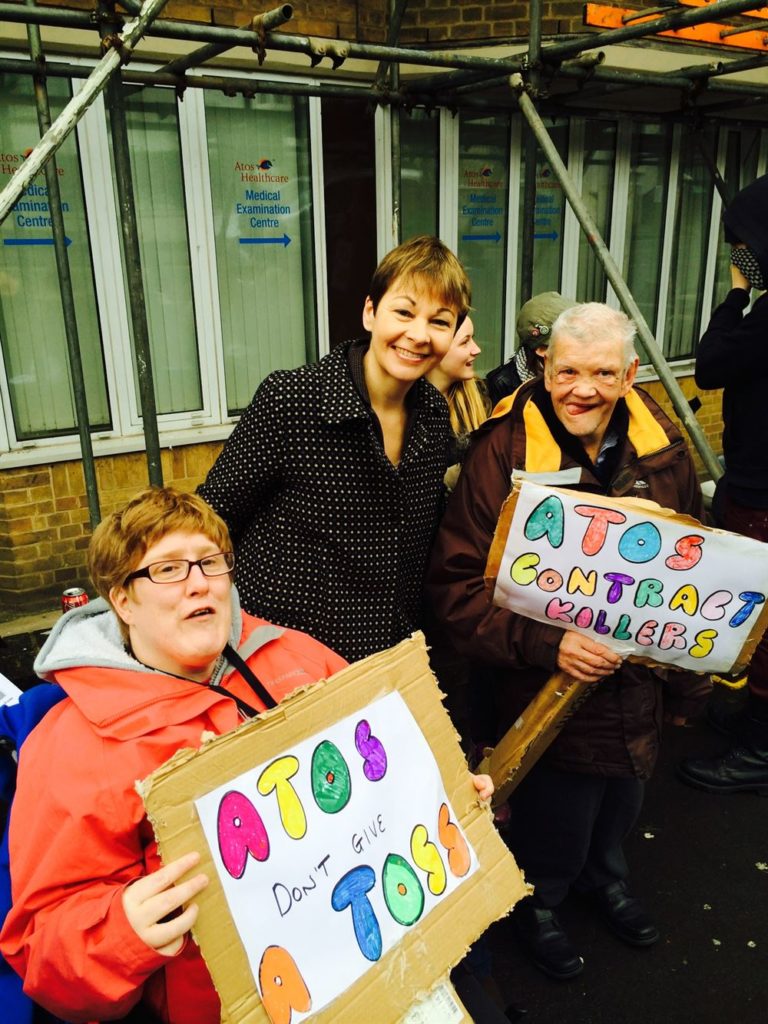 Atos
Healthcare
Medical
Examination
Centre
Atos
Healthcare
Medical
Examination
Centre
Atos
Healthcare
Medical
Examination
Centre
ATOS
CONTRACT
KILLERS
ATOS
DON'T GIVE
A TOSS